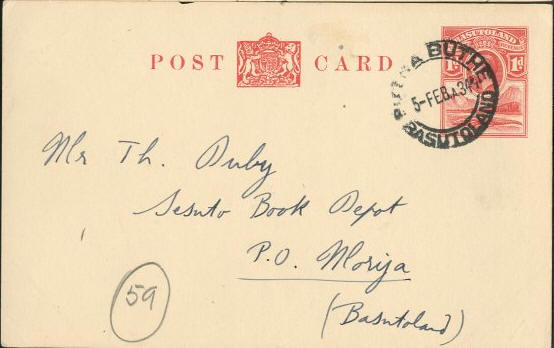 POST CARD
BASUTOLAND
1D 1D
BUTHA BUTHE
5-FEB
BASUTOLAND
Mr Th. Duby
Sesuto Book Depot
P.O. Morija
(Basutoland)
59